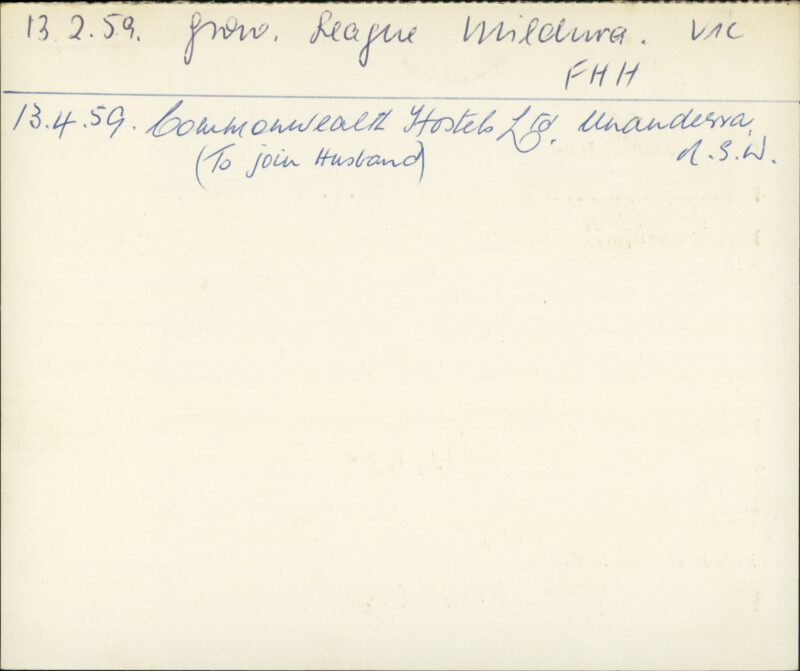 13.2.59. Grow. League Mildura. VIC
FHH
13.4.59. Commonwealth Hostels Ltd. Unanderra,
(To join Husband) N.S.W.